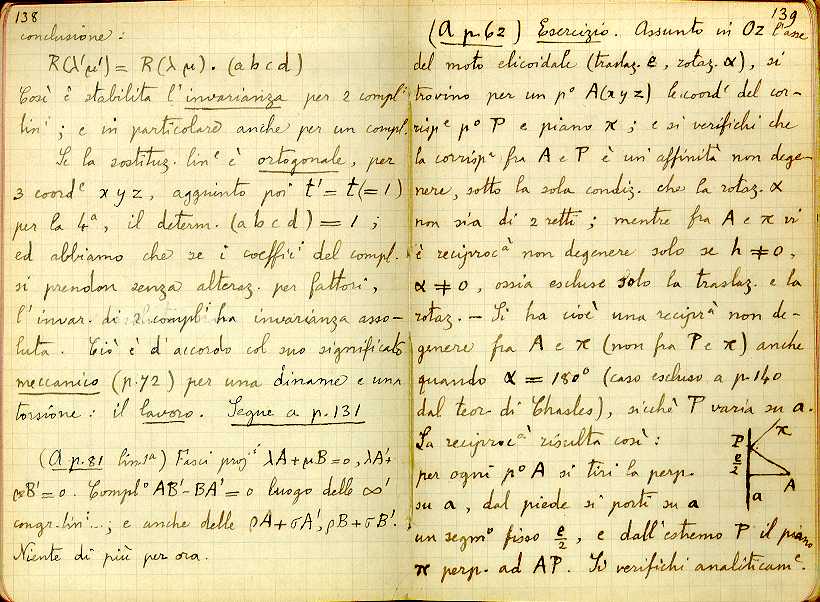 138
conclusione:
R(λ'μ') = R(λ μ) . (a b c d)
Così è stabilita l'invarianza per 2 compl.i
lin.i; e in particolare anche per un compl.
Se la sostituz. lin.e è ortogonale, per
3 coord.e x y z, aggiunto poi t' = t (= 1)
per la 4ª, il determ. (a b c d) = 1 ;
ed abbiamo che se i coeffic.i del compl.
si prendon senza alteraz. per fattori,
l'invar. di 2 compl.i ha invarianza asso-
luta. Ciò è d'accordo col suo significato
meccanico (p.72) per una diname e una
torsione: il lavoro. Segue a p.131
(A p.81 lin.) Fasci proj.i λA+μB=0, λA'+
μB'=0. Compl.o AB'-BA'=0 luogo delle ∞'
congr. lin.i...; e anche delle ρA+σA', ρB+σB'.
Niente di più per ora.
139
(A p.62) Esercizio. Assunto in Oz l'asse
del moto elicoidale (traslaz. e, rotaz. α), si
trovino per un p.o A(x y z) le coord.e del cor-
risp.e p.o P e piano π; e si verifichi che
la corrisp.e fra A e P è un'affinità non dege-
nere, sotto la sola condiz. che la rotaz. α
non sia di 2 retti; mentre fra A e π vi
è reciproc.à non degenere solo se h ≠ 0,
α ≠ 0, ossia escluse solo la traslaz. e la
rotaz. - Si ha cioè una recipr.à non de-
genere fra A e π (non fra P e π) anche
quando α = 180° (caso escluso a p.140
dal teor. di Chasles), sicchè P varia su a.
La reciproc.à risulta così:
per ogni p.o A si tiri la perp.
su a, dal piede si porti su a
un segm.o fisso e/2, e dall'estremo P il piano
π perp. ad AP. Si verifichi analiticam.e
π
P
e/2
A
a